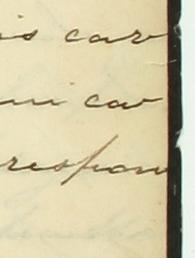 is car
in cor
respon